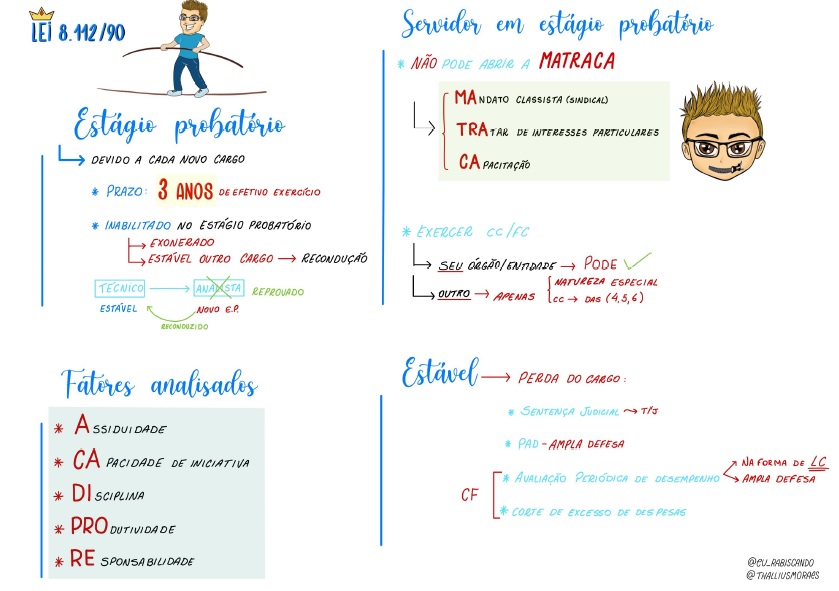 LEI 8.112/90
Estágio probatório
DEVIDO A CADA NOVO CARGO
* PRAZO: 3 ANOS DE EFETIVO EXERCÍCIO
* INABILITADO NO ESTÁGIO PROBATÓRIO
EXONERADO
ESTÁVEL OUTRO CARGO → RECONDUÇÃO
TÉCNICO → ANALISTA REPROVADO
ESTÁVEL NOVO E.P.
RECONDUZIDO
Servidor em estágio probatório
* NÃO PODE ABRIR A MATRACA
MANDATO CLASSISTA (SINDICAL)
TRATAR DE INTERESSES PARTICULARES
CAPACITAÇÃO
* EXERCER CC/FC
SEU ÓRGÃO/ENTIDADE → PODE ✓
OUTRO → APENAS
NATUREZA ESPECIAL
CC → DAS (4,5,6)
Fatores analisados
* ASSIDUIDADE
* CAPACIDADE DE INICIATIVA
* DISCIPLINA
* PRODUTIVIDADE
* RESPONSABILIDADE
Estável → PERDA DO CARGO:
* SENTENÇA JUDICIAL → T/J
* PAD - AMPLA DEFESA
CF
* AVALIAÇÃO PERIÓDICA DE DESEMPENHO
NA FORMA DE LC
AMPLA DEFESA
* CORTE DE EXCESSO DE DESPESAS
@EU_RABISCANDO
@THALLIUSMORAES